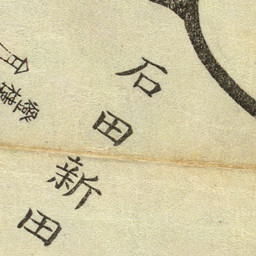 石田新田